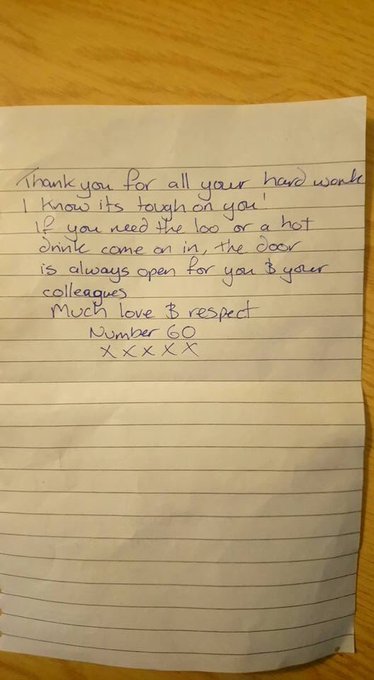 Thank you for all your hard work
I know its tough on you!
If you need the loo or a hot
drink come on in, the door
is always open for you & your
colleagues
Much love & respect
Number 60
x x x x x